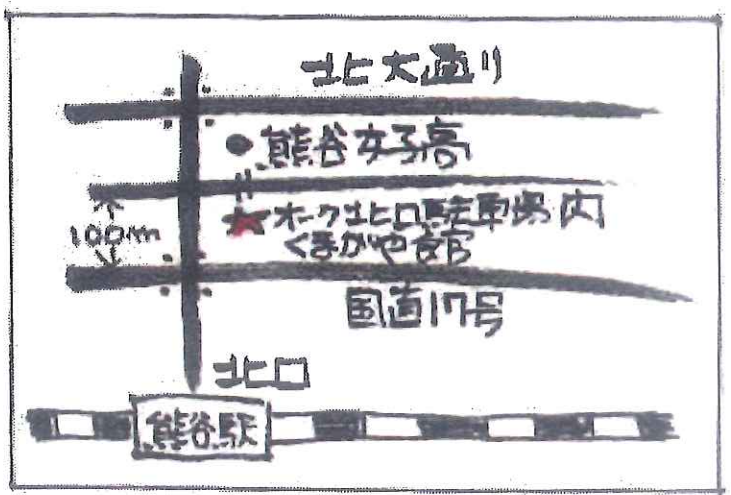 北大通り
熊谷女子高
100m
オーク北口駐車場内
くまがや館
国道17号
北口
熊谷駅